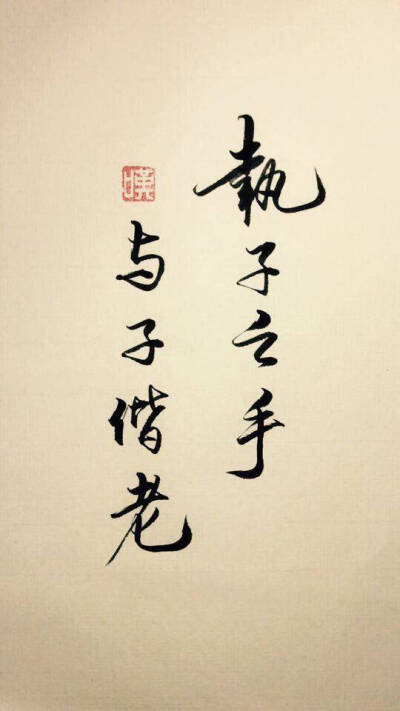 執子之手
与子偕老